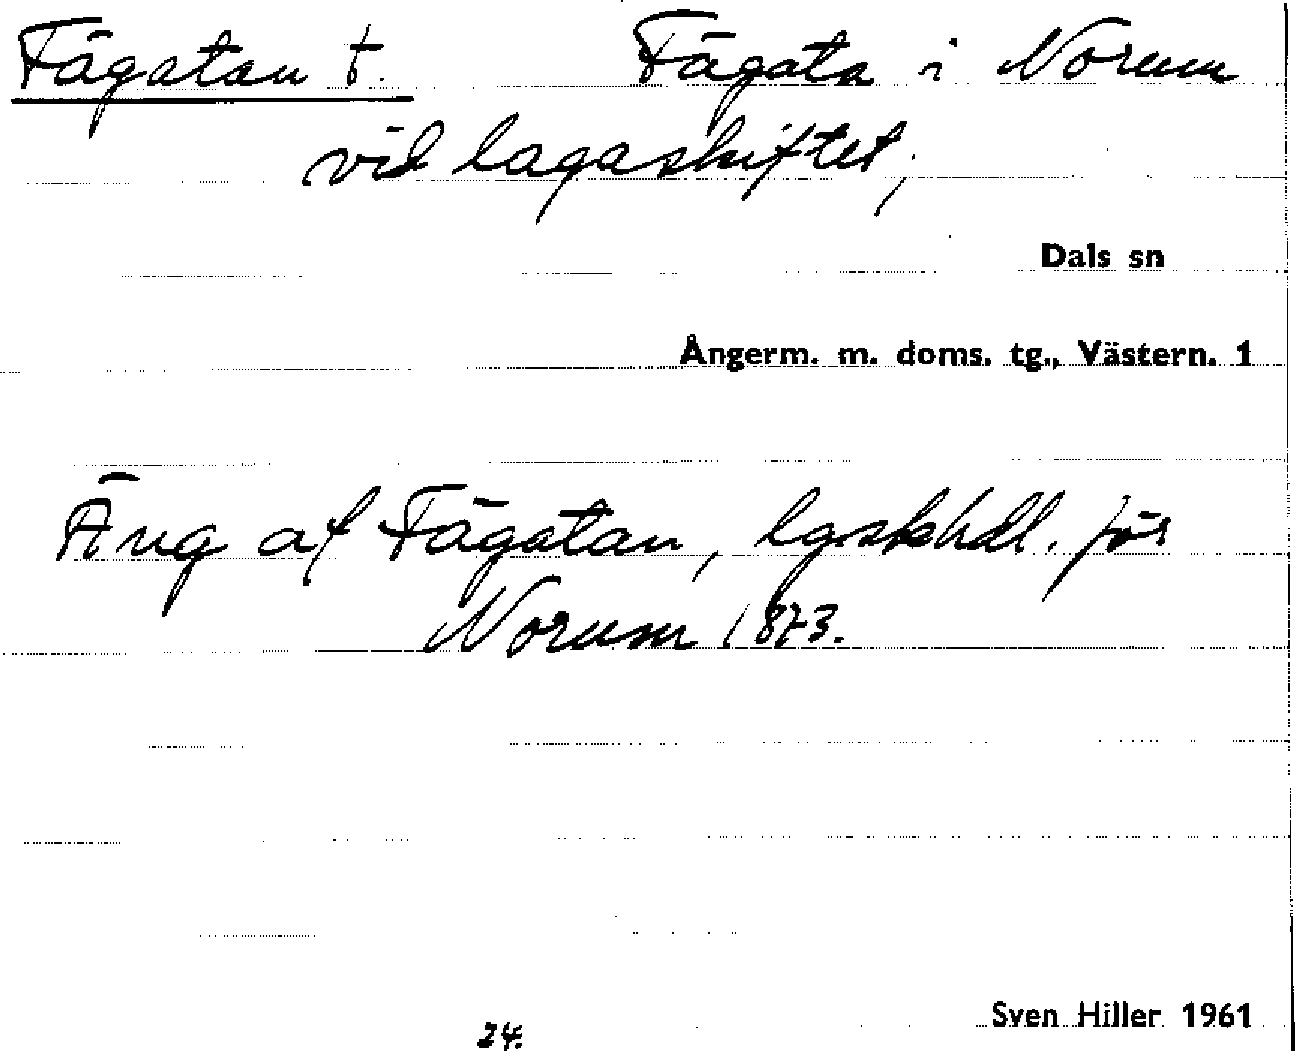 Fägatan †. Fägata i Norum
vid lagaskiftet,
Dals sn
Ångerm. m. doms. tg., Västern. 1
Äng af Fägatan, lgskhdl. för
Norum 1873.
Sven Hiller 1961
24.